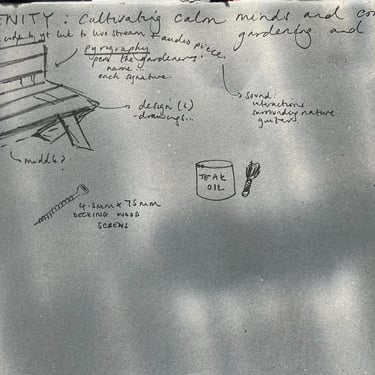 ENITY : Cultivating calm minds and con
gardening and
link to live stream + audio piece
pyrography
"pens the gardeners"
name
each signature.
sound:
interactions
surrounding nature
guitar
design (s)
-drawings...
middle?
TEAK
OIL
4.5mm x 75mm
DECKING WOOD
SCREWS